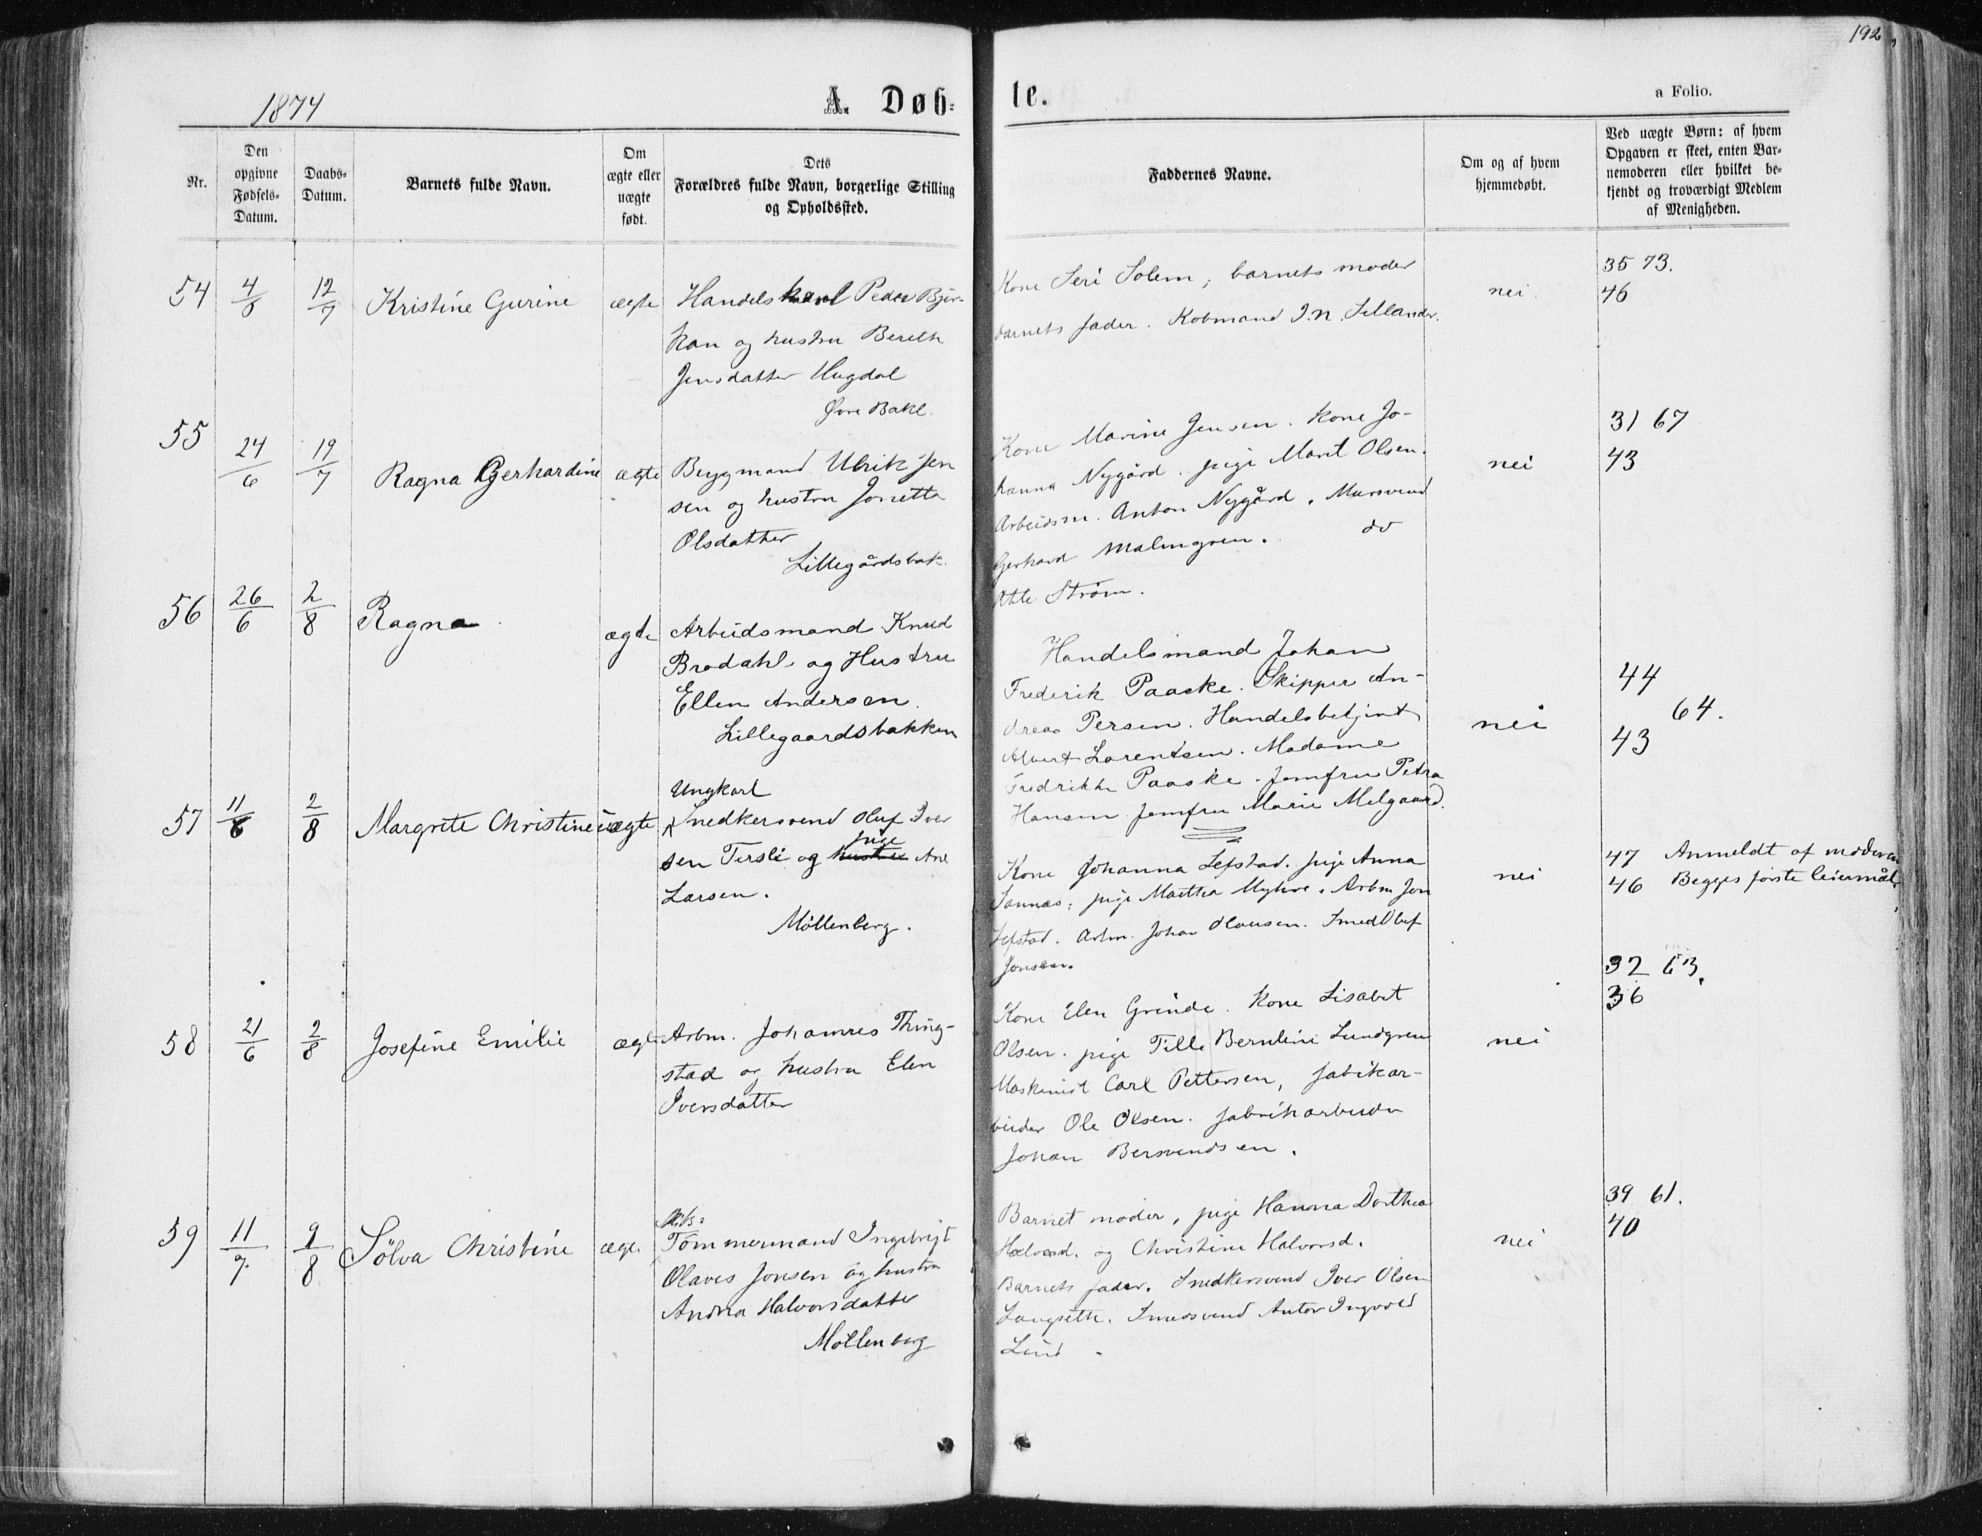 192
1874
A. Døb-
te.
a Folio.
Nr.
Den opgivne Fødsels-Datum.
Daabs-Datum.
Barnets fulde Navn.
Om ægte eller uægte født.
Dets Forældres fulde Navn, borgerlige Stilling og Opholdssted.
Faddernes Navne.
Om og af hvem hjemmedøbt.
Ved uægte Børn: af hvem Opgaven er skeet, enten Barnemoderen eller hvilket bekjendt og troværdigt Medlem af Menigheden.
54 4/5 12/7 Kristine Gurine ægte
Handelskarl Peder Bjør-
kan og hustru Bereth
Jensdatter Hugdal
Øvre Bakl.
Kone Seri Solem, barnets moder
barnets fader. Kobmand I. N. Sellander.
nei
35 73.
46
55 24/6 19/7 Ragna Gjerhardine ægte
Brygmand Ulrik Jen
sen og hustru Jonetta
Olsdatter
Lillegårdsbak.
Kone Marine Jensen. Kone Jo-
hanna Nygård. pige Marit Olsen.
Arbeidsm. Anton Nygård. Mursvend
Gerhard Malmgren. do
Atle Strøm.
nei
31 67
43
56 26/6 2/8 Ragna ægte
Arbeidsmand Knud
Brodahl og Hustru
Ellen Andersen.
Lillegaardsbakken
Handelsmand Johan
Frederik Paaske. Skipper An-
dreas Persen. Handelsbetjent
Albert Larentsen. Madame
Fredrikke Paaske. Jomfru Petra
Hansen. Jomfru Marie Melgaard.
nei
44
64.
43
57 11/6 2/8 Margrete Christine uægte
Ungkarl
Snedkersvend Oluf Iver
sen Tersli og hustru pige Ane
Larsen.
Møllenberg.
Kone Johanna Lefstad. pige Anna
Sannes; pige Martha Myhre. Arbm Jon
Lefstad. Arbm. Johan Olausen. Smed Oluf
Jonsen.
nei
47 Anmeldt af moderen
46 Begges første leiermål.
58 21/6 2/8 Josefine Emilie ægte
Arbm. Johannes Thing-
stad og hustru Elen
Iversdatter
Kone Elen Grinde. Kone Lisabet
Olsen. pige Tille Berntine Lundgren
Maskinist Carl Pettersen, fabrikar-
beider Ole Olsen. fabrikarbeider
Johan Bersvendsen.
nei
32 63.
36
59 11/7 9/8 Sölva Christine ægte
Skibs-
Tømmermand Ingebrigt
Olaves Jonsen og hustru
Andrea Halvorsdatter
Møllenberg
Barnet moder, pige Hanna Dorthea
Halvorsd. og Christine Halvorsd.
Barnets fader. Snedkersvend Iver Olsen
Langseth. Smedsvend Anton Ingvold
Lind
nei
39 61.
40